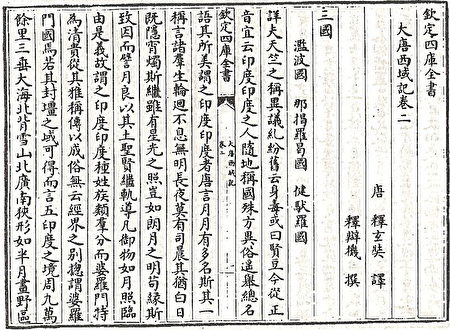 欽定四庫全書
大唐西域記卷二
唐 釋玄奘 譯
釋辯機 撰
三國
濫波國 那揭羅曷國 健馱羅國
詳夫天竺之稱異議糺紛舊云身毒或曰賢豆今從正
音宜云印度印度之人隨地稱國殊方異俗遥舉總名
欽定四庫全書 大唐西域記 卷二
語其所美謂之印度印度者唐言月月有多名斯其一
稱言諸羣生輪迴不息無明長夜莫有司晨其猶白日
既隱宵燭斯繼雖有星光之照豈如朗月之明苟緣斯
致因而譬月良以其土聖賢繼軌導凡御物如月照臨
由是義故謂之印度印度種姓族類羣分而婆羅門特
為清貴從其雅稱傳以成俗無云經界之別總謂婆羅
門國焉若其封壃之域可得而言五印度之境周九萬
餘里三垂大海北背雪山北廣南狹形如半月畫野區